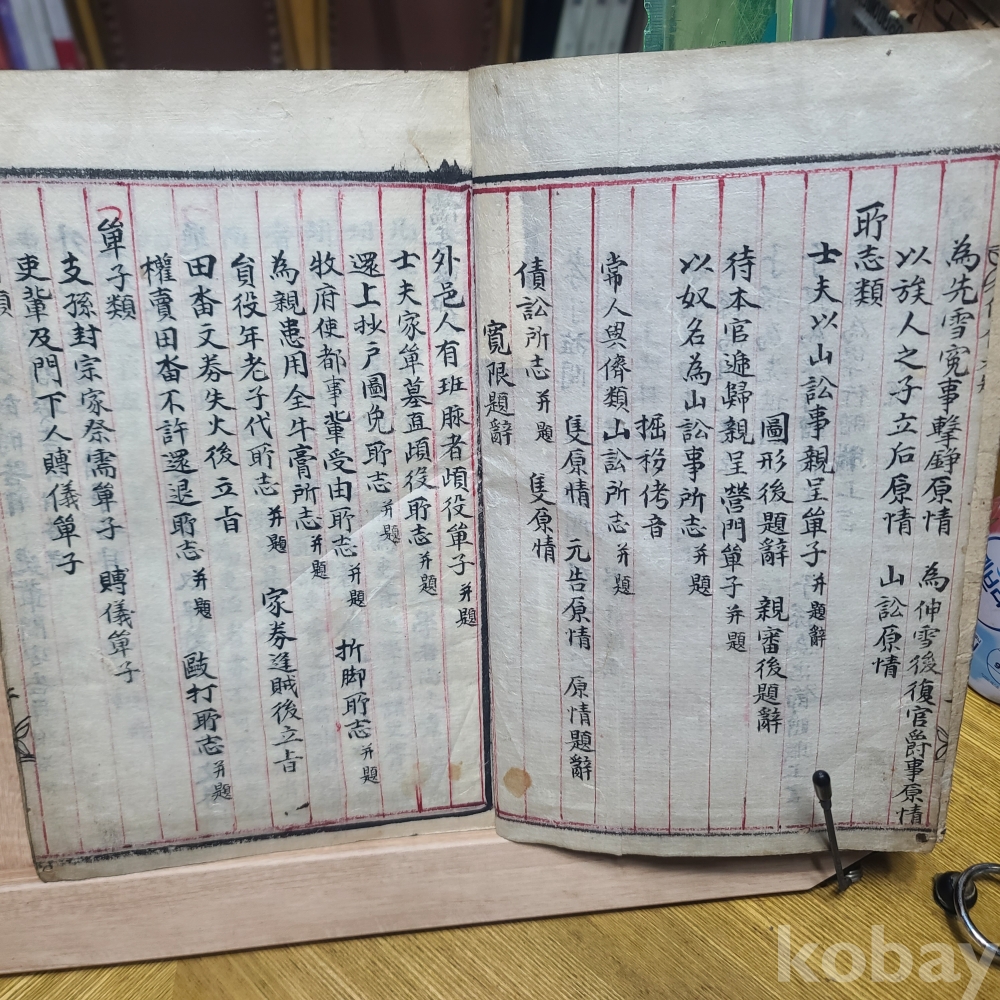 為先雪冤事擊錚原情 為伸雪後復官爵事原情
以族人之子立后原情 山訟原情
所志類
士夫以山訟事親呈單子 并題辭
圖形後題辭 親審後題辭
待本官遞歸親呈營門單子 并題
以奴名為山訟事所志 并題
掘移侤音
常人與儕類山訟所志 并題
隻原情 元告原情 原情題辭
債訟所志 并題 隻原情
寬限題辭
外邑人有班脉者頉役單子 并題
士夫家單墓直頉役所志 并題
還上抄戶圖免所志 并題
牧府使都事軰受由所志 并題 折脚所志 并題
為親患用全牛膏所志 并題
貟役年老子代所志 并題 家券逢賊後立旨
田畓文券失火後立旨
權賣田畓不許還退所志 并題 毆打所志 并題
單子類
支孫封宗家祭需單子 賻儀單子
吏軰及門下人賻儀單子
類
kobay